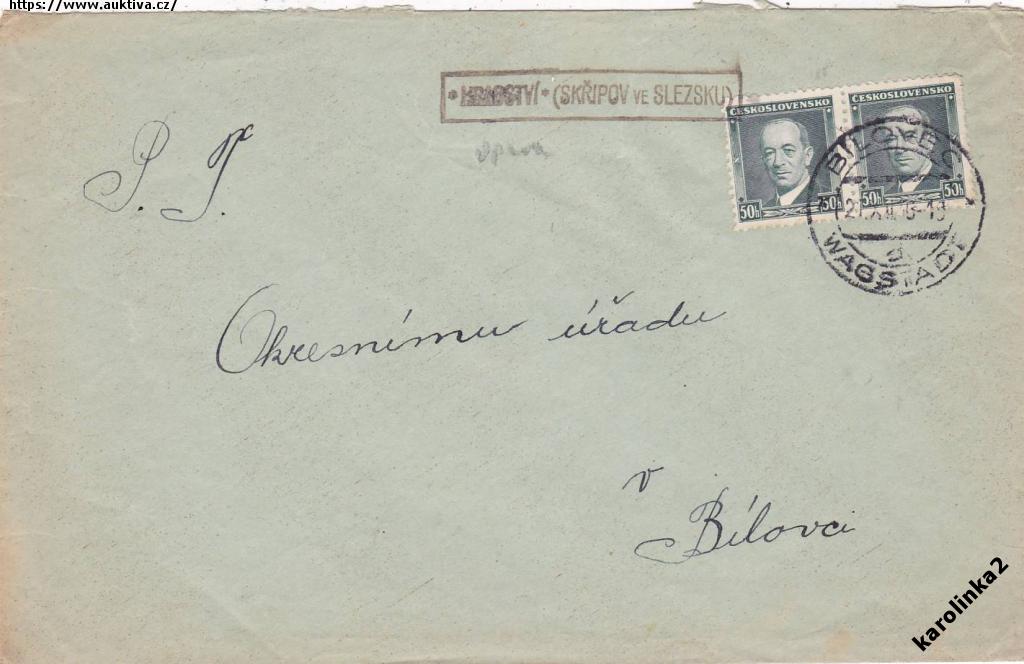 https://www.auktiva.cz/
(SKŘIPOV VE SLEZSKU)
ČESKOSLOVENSKO ČESKOSLOVENSKO
50h 50h 50h 50h
BÍLOVEC
WAGSTADT
P. T.
Okresnímu úřadu
v
Bílovci
karolinka2